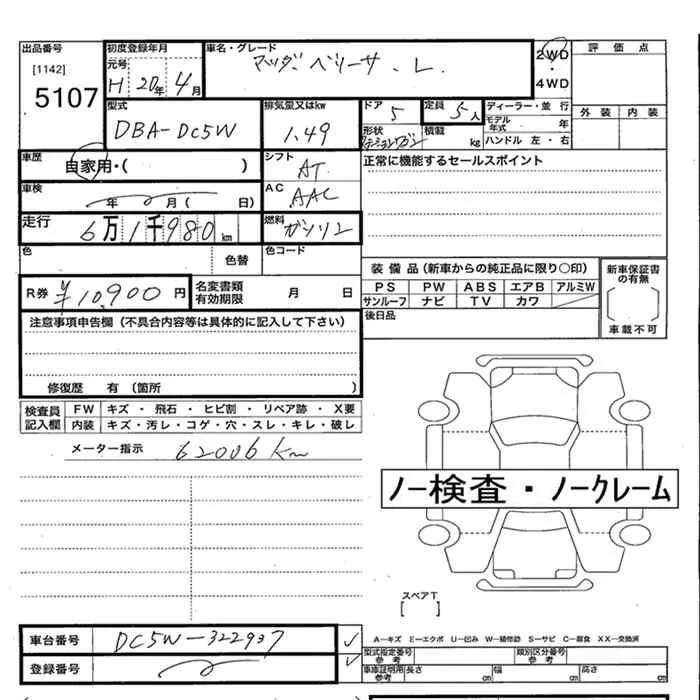 出品番号 初度登録年月 車名・グレード 2WD 評価点
[1142] 元号 マツダ ベリーサ . L. ・
5107 H 20年 4月 4WD
型式 排気量又はkw ドア 定員 ディーラー・並行 外装 内装
DBA-DC5W 1.49 5 5人 モデル年式 年
形状 ステーションワゴン 積載 kg ハンドル 左・右
車歴 自家用・( ) シフト AT 正常に機能するセールスポイント
車検 年 月( 日) AC AAC
走行 6万1千980km 燃料 ガソリン
色 色替 色コード
装備品(新車からの純正品に限り○印) 新車保証書の有無
R券 ¥10,900円 名変書類有効期限 月 日 PS PW ABS エアB アルミW
サンルーフ ナビ TV カワ
注意事項申告欄(不具合内容等は具体的に記入して下さい) 後日品 車載不可
修復歴 有(箇所 )
検査員記入欄 FW キズ・飛石・ヒビ割・リペア跡・X要
内装 キズ・汚レ・コゲ・穴・スレ・キレ・破レ
メーター指示 62006km
ノー検査・ノークレーム
スペアT
[ ]
車台番号 DC5W-322937 A−キズ E−エクボ U−凹み W−補修跡 S−サビ C−腐食 XX−交換済
登録番号 型式指定番号 参考 類別区分番号 参考
車庫証明用 参考 長さ cm 幅 cm 高さ cm